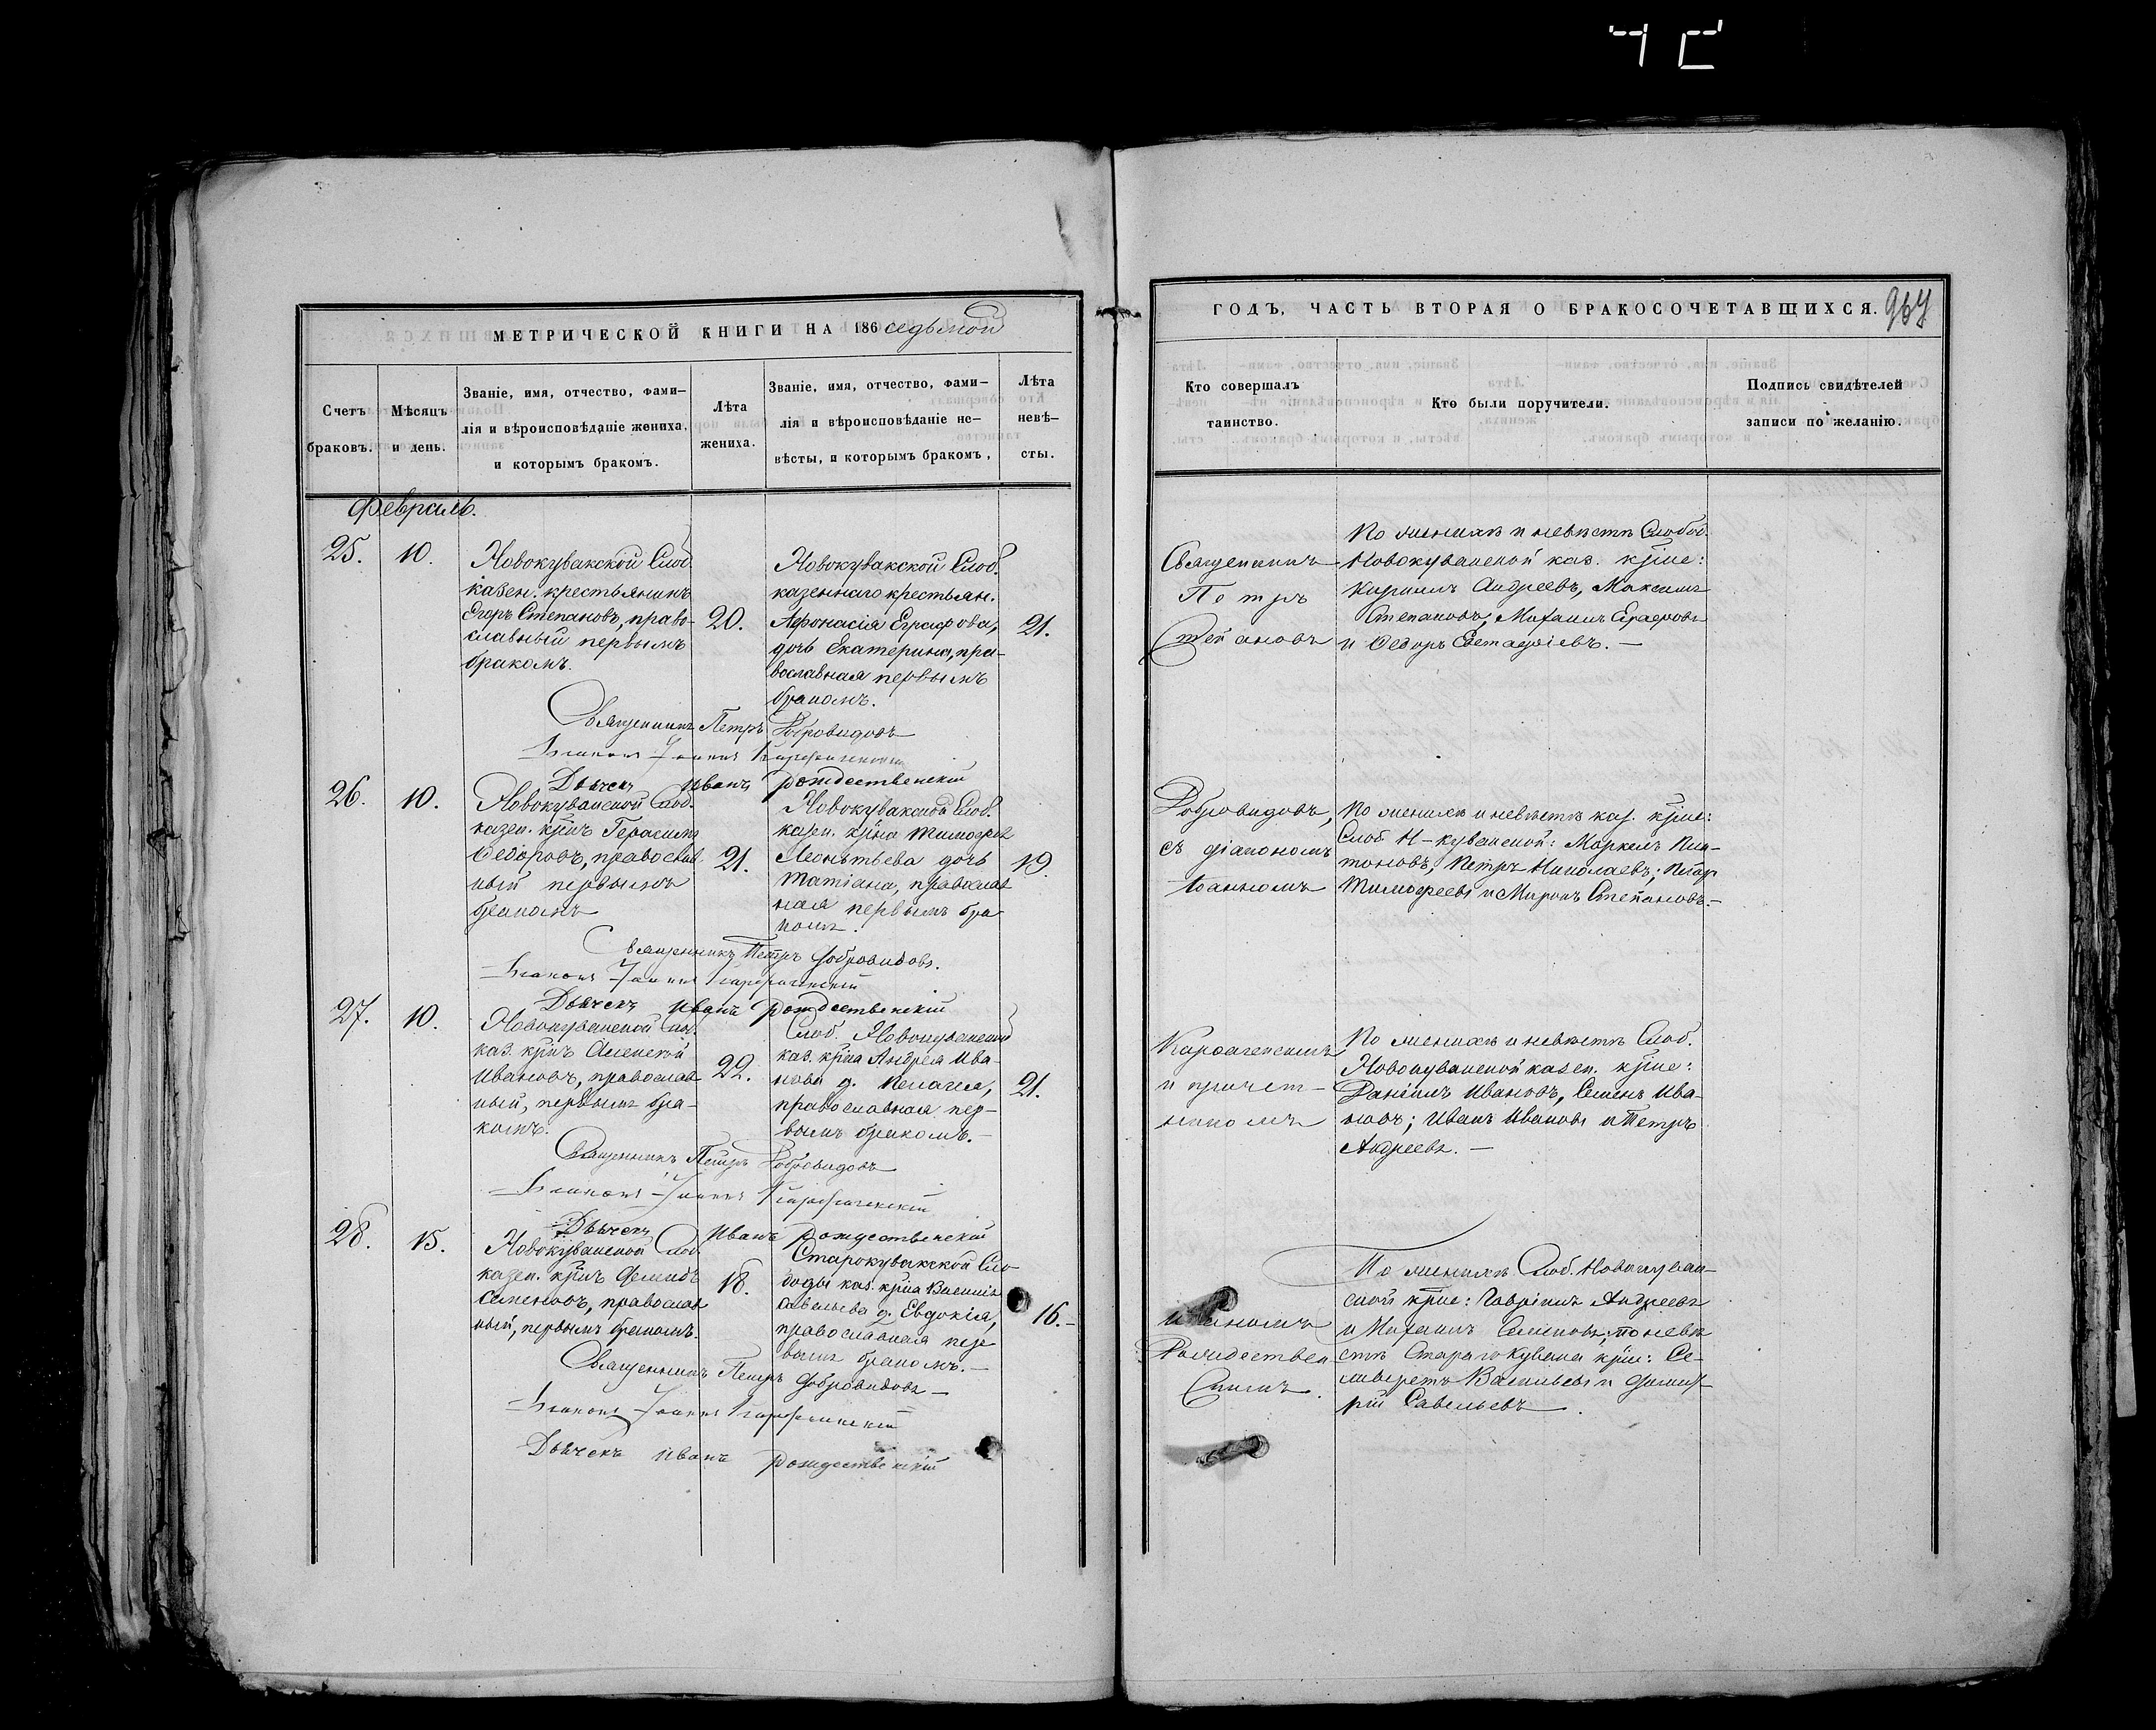 МЕТРИЧЕСКОЙ КНИГИ НА 186 седьмой
Счетъ браковъ.
Мѣсяцъ и день.
Званіе, имя, отчество, фами-
лія и вѣроисповѣданіе жениха,
и которымъ бракомъ.
Лѣта жениха.
Званіе, имя, отчество, фами-
лія и вѣроисповѣданіе не-
вѣсты, и которымъ бракомъ.
Лѣта невѣ-
сты.
Февраль.
25. 10.
Новокувакской Слоб.
казен. крестьянинъ
Егоръ Степановъ, право-
славный первымъ
бракомъ.
20.
Новокувакской Слоб.
казеннаго крестьян.
Афонасія Евграфова,
дочь Екатерина, пра-
вославная первымъ
бракомъ.
21.
Священникъ Петръ Добровидовъ
Діаконъ Іоаннъ
Дьячекъ Иванъ Рождественскій
26. 10.
Новокувакской Слоб.
казен. крнъ Герасимъ
Ѳедоровъ, православ
ный первымъ
бракомъ
21.
Новокувакской Слоб.
казен. крна Тимофея
Леонтьева дочь
Татіана, православ
ная первымъ бра
комъ.
19.
Священникъ Петръ Добровидовъ.
Діаконъ Іоаннъ
Дьячекъ Иванъ Рождественскій
27. 10.
Новокувакской Слоб.
каз. крнъ Алексѣй
Ивановъ, православ
ный, первымъ бра-
комъ.
22.
Слоб. Новокувакской
каз. крна Андрея Ива-
нова д. Пелагея,
православная пер-
вымъ бракомъ.-
21.
Священникъ Петръ Добровидовъ
Діаконъ Іоаннъ
Дьячекъ Иванъ Рождественскій
28. 15.
Новокувакской Слоб.
казен. крнъ Демидъ
Семеновъ, православ
ный, первымъ бракомъ.
18.
Старокувакской Сло
боды каз. крна Василія
Савельева д. Евдокія,
православная пер
вымъ бракомъ.-
16.-
Священникъ Петръ Добровидовъ-
Діаконъ Іоаннъ
Дьячекъ Иванъ Рождественскій
ГОДЪ, ЧАСТЬ ВТОРАЯ О БРАКОСОЧЕТАВШИХСЯ.
Кто совершалъ таинство.
Кто были поручители.
Подпись свидѣтелей
записи по желанію.
Священникъ
Петръ
Степановъ
По женихѣ и невѣстѣ Слобод.
Новокувакской каз. крне:
Кирилъ Андреевъ, Максимъ
Степановъ; Михаилъ Евграфовъ
и Ѳедоръ Евстафіевъ.-
Добровидовъ,
съ діакономъ
Іоанномъ
По женихѣ и невѣстѣ каз. крне:
Слоб Н-кувакской: Маркелъ Пла-
тоновъ, Петръ Николаевъ; Петръ
Тимофеевъ и Миронъ Степановъ.-
и причет-
никомъ
По женихѣ и невѣстѣ Слоб.
Новокувакской казен. крне:
Даніилъ Ивановъ, Семенъ Ива-
новъ; Иванъ Ивановъ и Петръ
Андреевъ.-
Рождествен
скимъ.
По женихѣ Слоб. Новокувак-
ской крне: Гавріилъ Андреевъ
и Михаилъ Семеновъ; по невѣ
стѣ Стараго Кувака крне: Се-
ливерстъ Васильевъ и Димит-
рій Савельевъ.